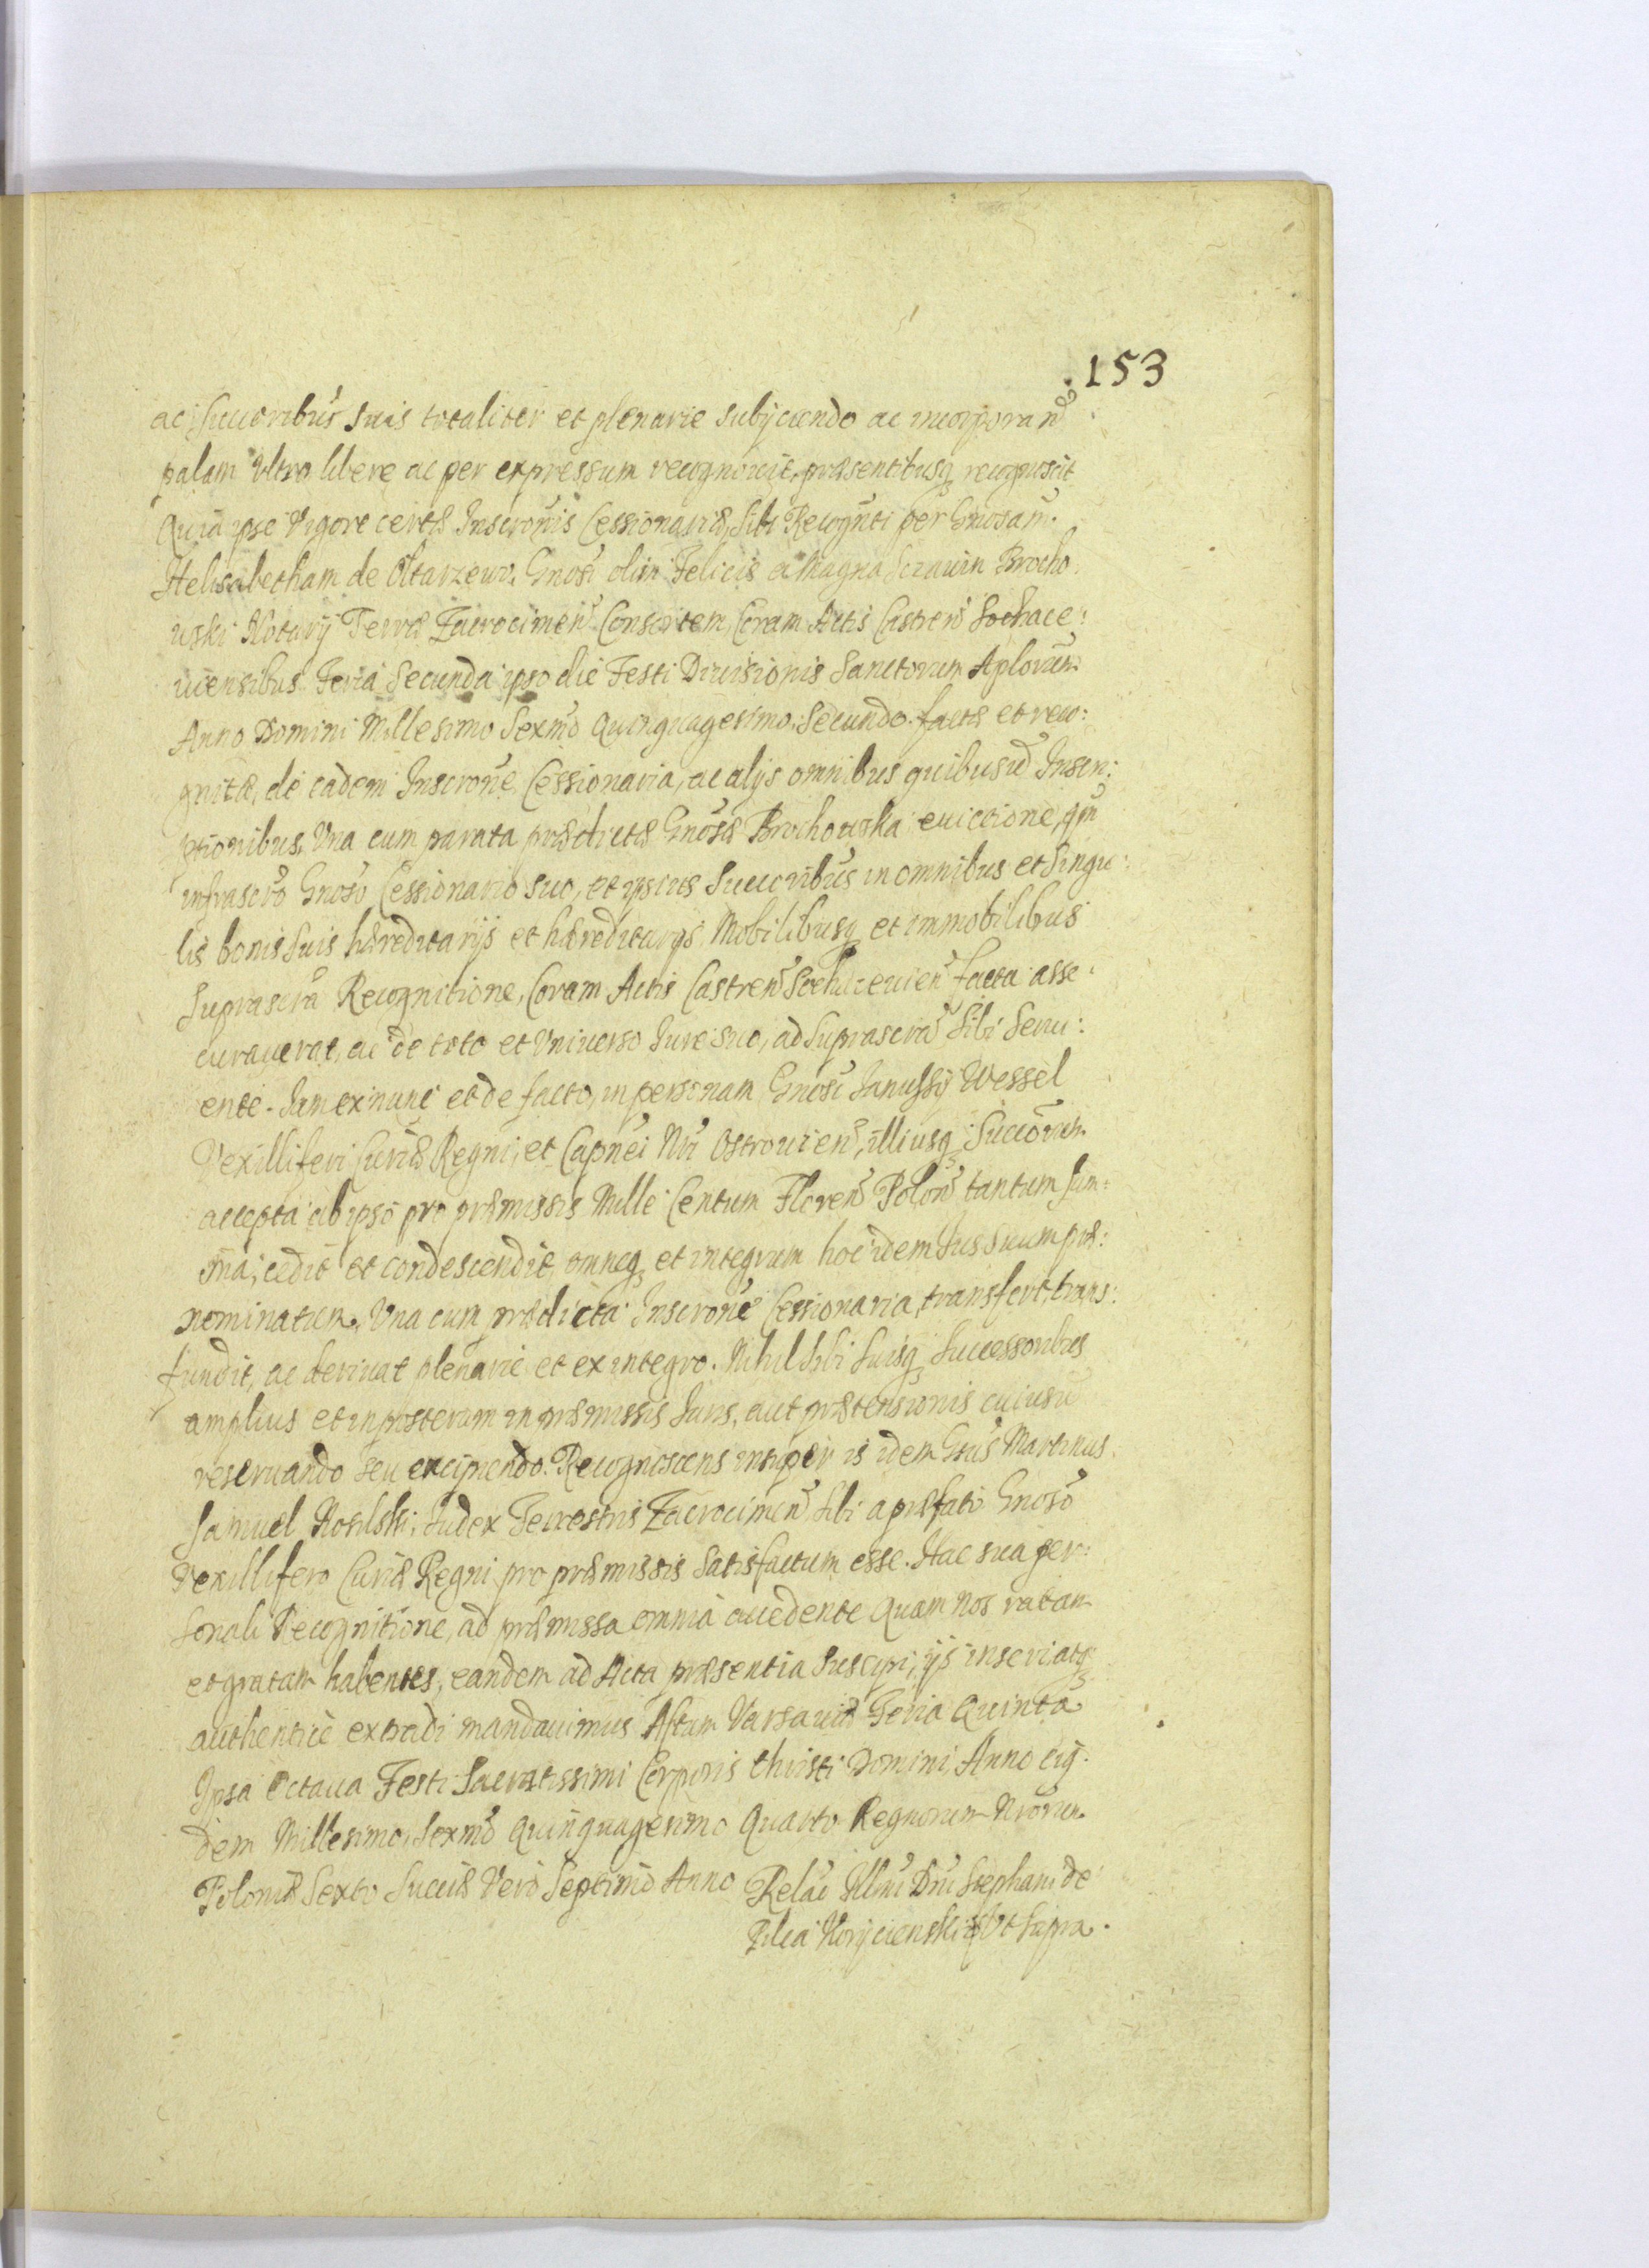 153
ac succoribus suis totaliter et plenarie subijciendo ac incorporando
palam ultro libere ac per expressum recognovit, præsentibusq recognoscit
Quia ipse Vigore certæ Inscronis Cessionariæ, sibi Recognti per Gnosam
Helisabetham de Oltarzewo. Gnosi olim Felicis a Magna Brocho
uski Notarij Terræ Zacrocimen Consortem, Coram Actis Castren Sochace:
uiensibus Feria Secunda ipso die Festi Diuisionis Sanctorum Aplorum
Anno Domini Millesimo Sexmo Quinquagesimo, Secundo factæ et reco:
gnitæ, de eadem Inscrone Cessionaria, ac alijs omnibus quibusuis Inscri:
ptionibus, Vna cum parata prædictæ Gnosæ Brochouska euictione, qm
infrascro Gnoso Cessionario suo, et ipsius Succoribus in omnibus et singu:
lis bonis suis hæreditarijs et hæreditarijs Mobilibusq et immobilibus
suprascra Recognitione, Coram Actis Castren Sochaceuien facta asse:
curauerat, ac de toto et Vniuerso Jure suo, ad suprascra sibi serui:
ente. Jam ex nunc et de facto, in personam Gnosi Janussij Wessel
Vexilliferi Curiæ Regni, et Capnei Nri Ostrouien, illiusq Succorum
accepta ab ipso pro præmissis Mille Centum Floren Polon tantum sum:
ma, cedit et condescendit, omneq et integrum hoc idem Jus suum præ:
nominatum, Vna cum prædicta Inscrone Cessionaria, transfert, trans:
fundit, ac deriuat plenarie et ex integro. Nihil sibi suisq Successoribus
amplius et in posterum in præmissis Juris, aut prætensionis cuiusuis
reseruando seu excipiendo. Recognoscens insuper is idem Gsus Martinus
Samuel Judex Terrestris Zacrocimen sibi a præfato Gnoso
Vexillifero Curiæ Regni pro præmissis satisfactum esse. Hac sua per:
sonali Recognitione, ad præmissa omnia accedente Quam nos ratam
et gratam habentes, eandem ad Acta præsentia suscipi, ijs inseri atq
authentice extradi mandauimus Actum Varsauiæ Feria Quinta
Ipsa Octaua Festi Sacratissimi Corporis Christi Domini Anno eij
dem Millesimo, Sexmo Quinquagesimo Quarto Regnorum Nrorum
Poloniæ Sexto Sueciæ Vero Septimo Anno Relao Illmi Dni Stephani de
Pilca Korijcienski Vt supra.